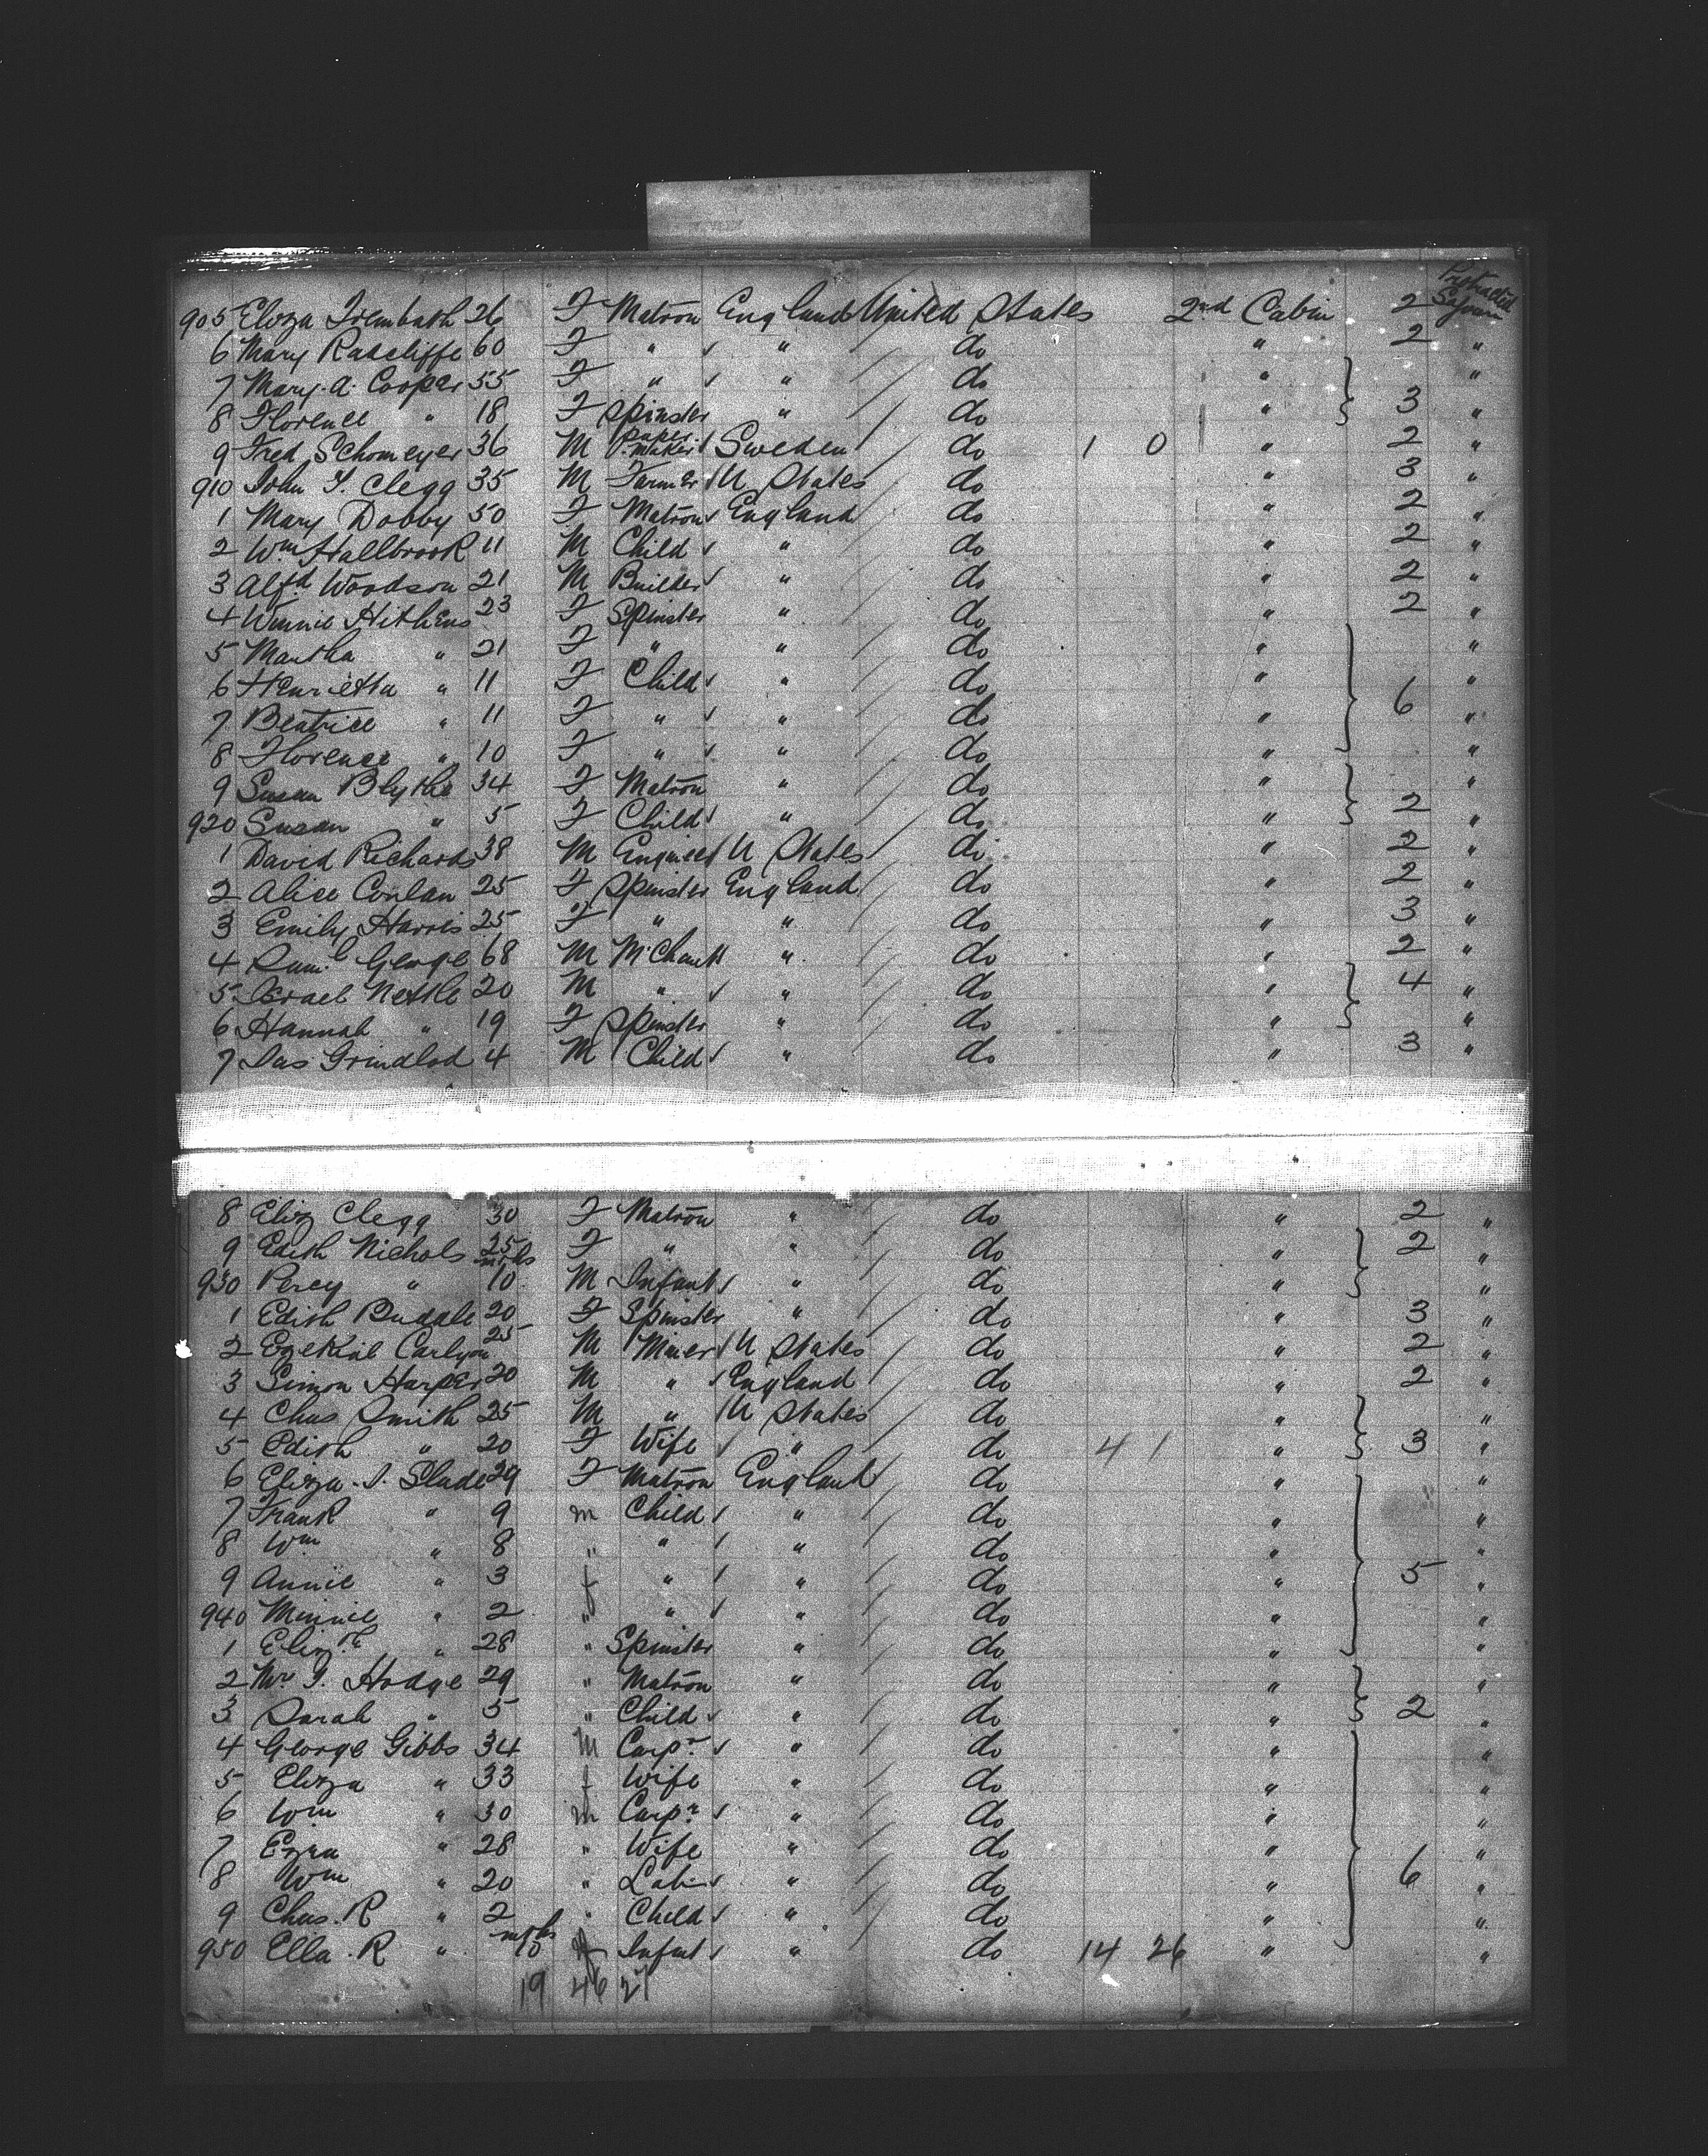 905 Eliza Trembath 26 F Matron England United States 2nd Cabin 2 Protracted Sojourn
6 Mary Radcliffe 60 F " " do " 2 "
7 Mary. A. Cooper 55 F " " do " "
8 Florence " 18 F Spinster " do " 3 "
9 Fred Schomeyer 36 M Paper Maker Sweden do 1 0 " 2 "
910 John T. Clegg 35 M Farmer U States do " 3 "
1 Mary Dobby 50 F Matron England do " 2 "
2 Wm Hallbrook 11 M Child " do " 2 "
3 Alfd Woodson 21 M Builder " do " 2 "
4 Winnie Hithens 23 F Spinster " do " 2 "
5 Martha " 21 F " " do " "
6 Henrietta " 11 F Child " do " "
7 Beatrice " 11 F " " do " 6 "
8 Florence " 10 F " " do " "
9 Susan Blythe 34 F Matron " do " "
920 Susan " 5 F Child " do " 2 "
1 David Richards 38 M Engineer U States do " 2 "
2 Alice Conlan 25 F Spinster England do " 2 "
3 Emily Harris 25 F " " do " 3 "
4 Saml George 68 M Mchant " do " 2 "
5 Israel Nettle 20 M " " do " 4 "
6 Hannah " 19 F Spinster " do " "
7 Jas Grindlod 4 M Child " do " 3 "
8 Eliz Clegg 30 F Matron " do " 2 "
9 Edith Nichols 25 F " " do " 2 "
930 Percy " mths 10 M Infant " do " "
1 Edith Buddle 20 F Spinster " do " 3 "
2 Ezekiel Carlyon 25 M Miner U States do " 2 "
3 Simon Harper 20 M " England do " 2 "
4 Chas Smith 25 M " U States do " "
5 Edith " 20 F Wife " do 4 1 " 3 "
6 Eliza. J. Slade 29 F Matron England do " "
7 Frank " 9 m Child " do " "
8 Wm " 8 " " " do " "
9 Annie " 3 f " " do " 5 "
940 Minnie " 2 " " " do " "
1 Elizth " 28 " Spinster " do " "
2 Mrs J. Hodge 29 " Matron " do " "
3 Sarah " 5 " Child " do " 2 "
4 George Gibbs 34 M Carpr " do " "
5 Eliza " 33 f Wife " do " "
6 Wm " 30 m Carpr " do " "
7 Ezra " 28 " Wife " do " "
8 Wm " 20 " Labr " do " 6 "
9 Chas. R " 2 " Child " do " "
950 Ella. R " mths 10 f Infant " do 14 26 " "
19 46 27